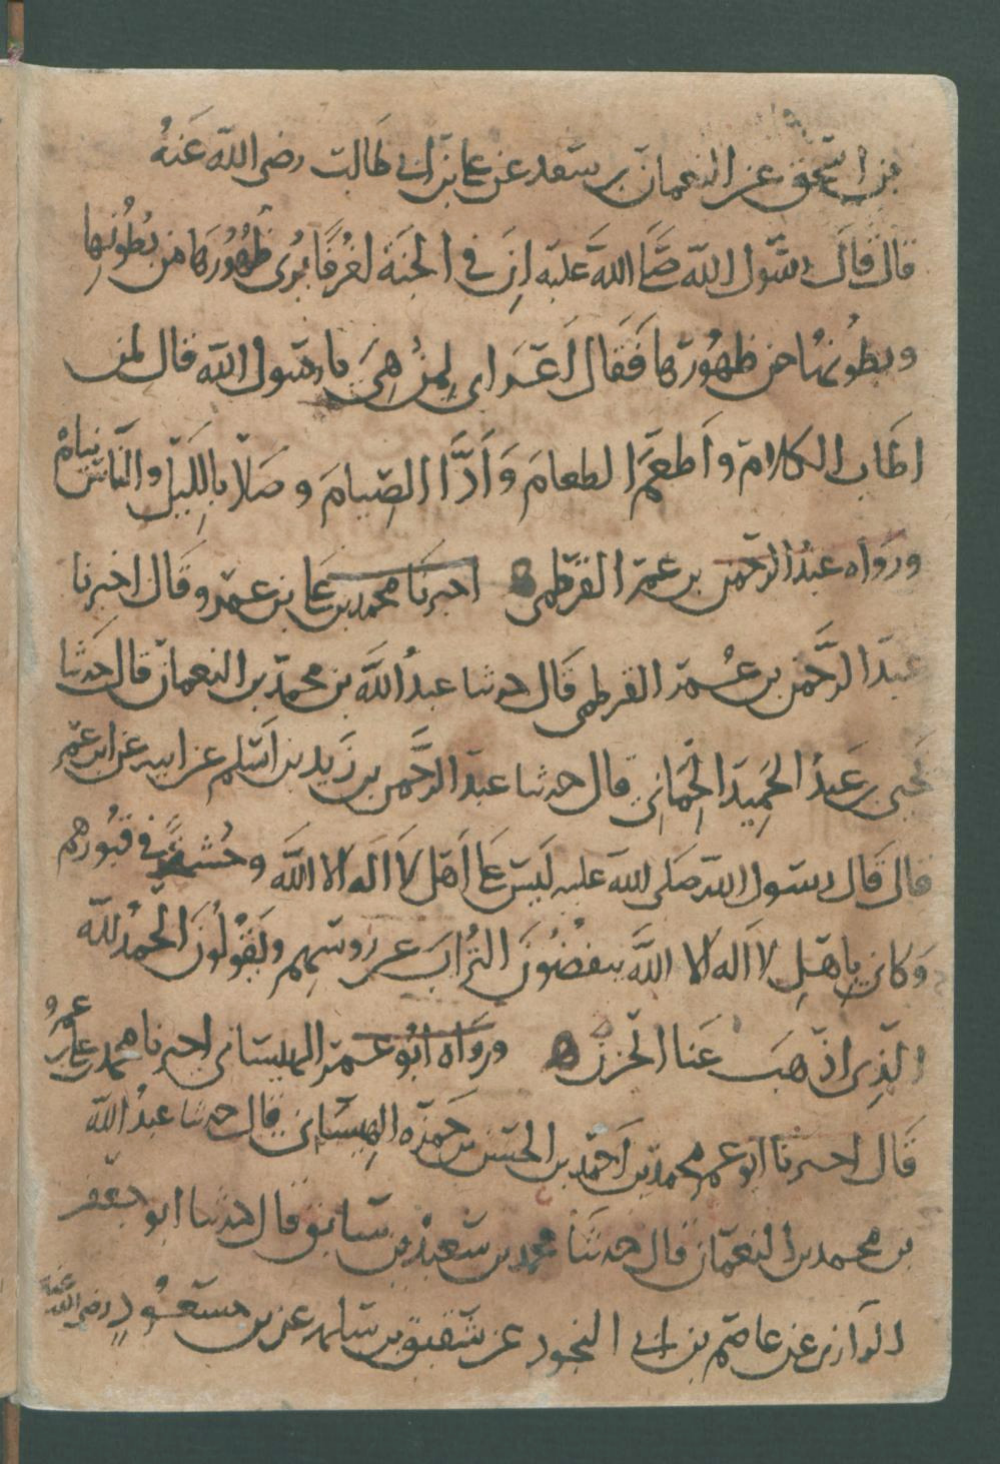 بن اسحق عن النعمان بن سعد عن على بن ابى طالب رضى الله عنه
قال قال رسول الله صلى الله عليه ان فى الجنة لغرفا يرى ظهورها من بطونها
وبطونها من ظهورها فقال اعرابى لمن هى يا رسول الله قال لمن
اطاب الكلام واطعم الطعام وادا الصيام وصلا بالليل والناس نيام
ورواه عبد الرحمن بن عمر القرظى اخبرنا محمد بن على بن عمر وقال اخبرنا
عبد الرحمن بن عمر القرظى قال حدثنا عبد الله بن محمد بن النعمان قال حدثنا
يحيى بن عبد الحميد الحمانى قال حدثنا عبد الرحمن بن زيد بن اسلم عن ابيه عن ابن عمر
قال قال رسول الله صلى الله عليه ليس على اهل لا اله الا الله وحشة فى قبورهم
وكانى باهل لا اله الا الله ينفضون التراب عن روسهم ويقولون الحمد لله
الذى اذهب عنا الحزن ورواه ابو عمر الهيسانى اخبرنا محمد بن على بن عمر
قال اخبرنا ابو عمر محمد بن احمد بن الحسن بن حمزه الهيسانى قال حدثنا عبد الله
بن محمد بن النعمان قال حدثنا محمد بن سعيد بن سابق قال حدثنا ابو جعفر
الرازى عن عاصم بن ابى النجود عن شقيق بن سلمه عن بن مسعود رضى الله عنه